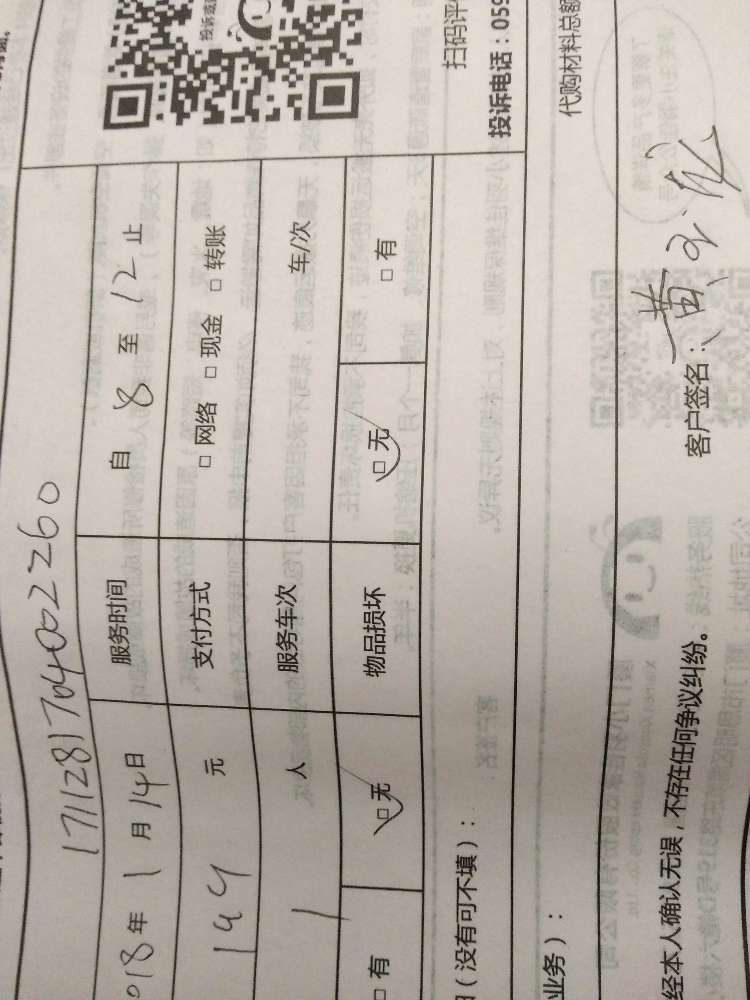 投诉
1711281704002260
018年 1 月 14日 服务时间 自 8 至 12 止
元 支付方式 □ 网络 □ 现金 □ 转账
1 人 服务车次 车/次
□ 有 □ 无 物品损坏 □ 无 □ 有
(没有可不填):
扫码评
业务):
投诉电话:059
代购材料总额
经本人确认无误,不存在任何争议纠纷。
客户签名:黄